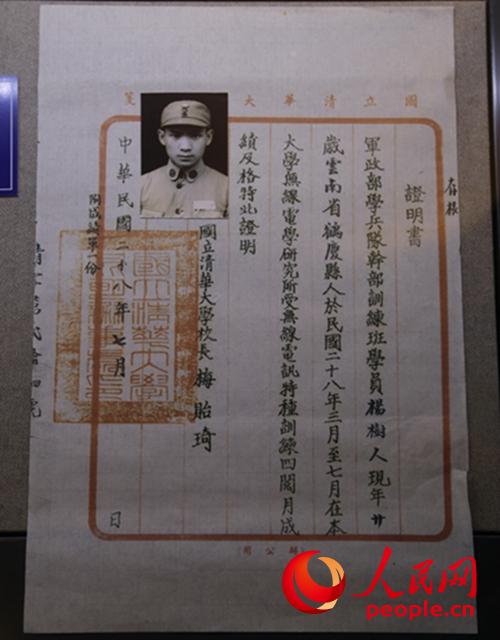 國立清華大 箋
存根
證明書
軍政部學兵隊幹部訓練班學員楊樹人現年廿
歲雲南省鶴慶縣人於民國二十八年三月至七月在本
大學無線電學研究所受無線電訊特種訓練四閱月成
績及格特此證明
國立清華大學校長 梅貽琦
中華民國二十八年七月 日
附成績單一份
人民网
people.cn